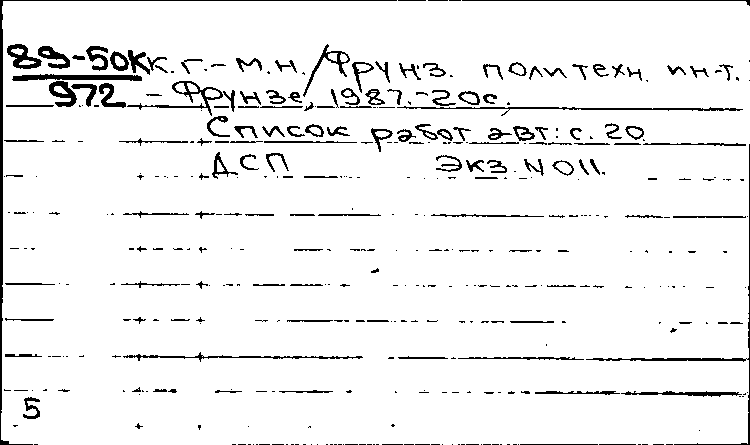 89-50К к.г.-м.н./Фрунз. политехн. ин-т.
972 - Фрунзе, 1987.-20с.
Список работ авт: с. 20
ДСП Экз. N 011.
5